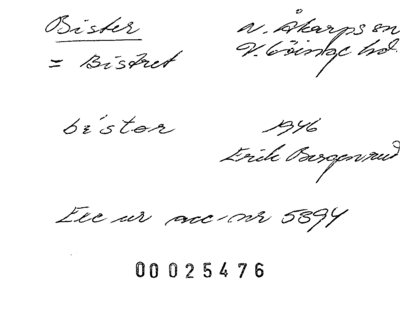 Bister
N. Åkarps sn
= Bistret
V. Göinge hd
bístər
1946
Erik Bergenrud
Exc ur acc.nr 5894
00025476